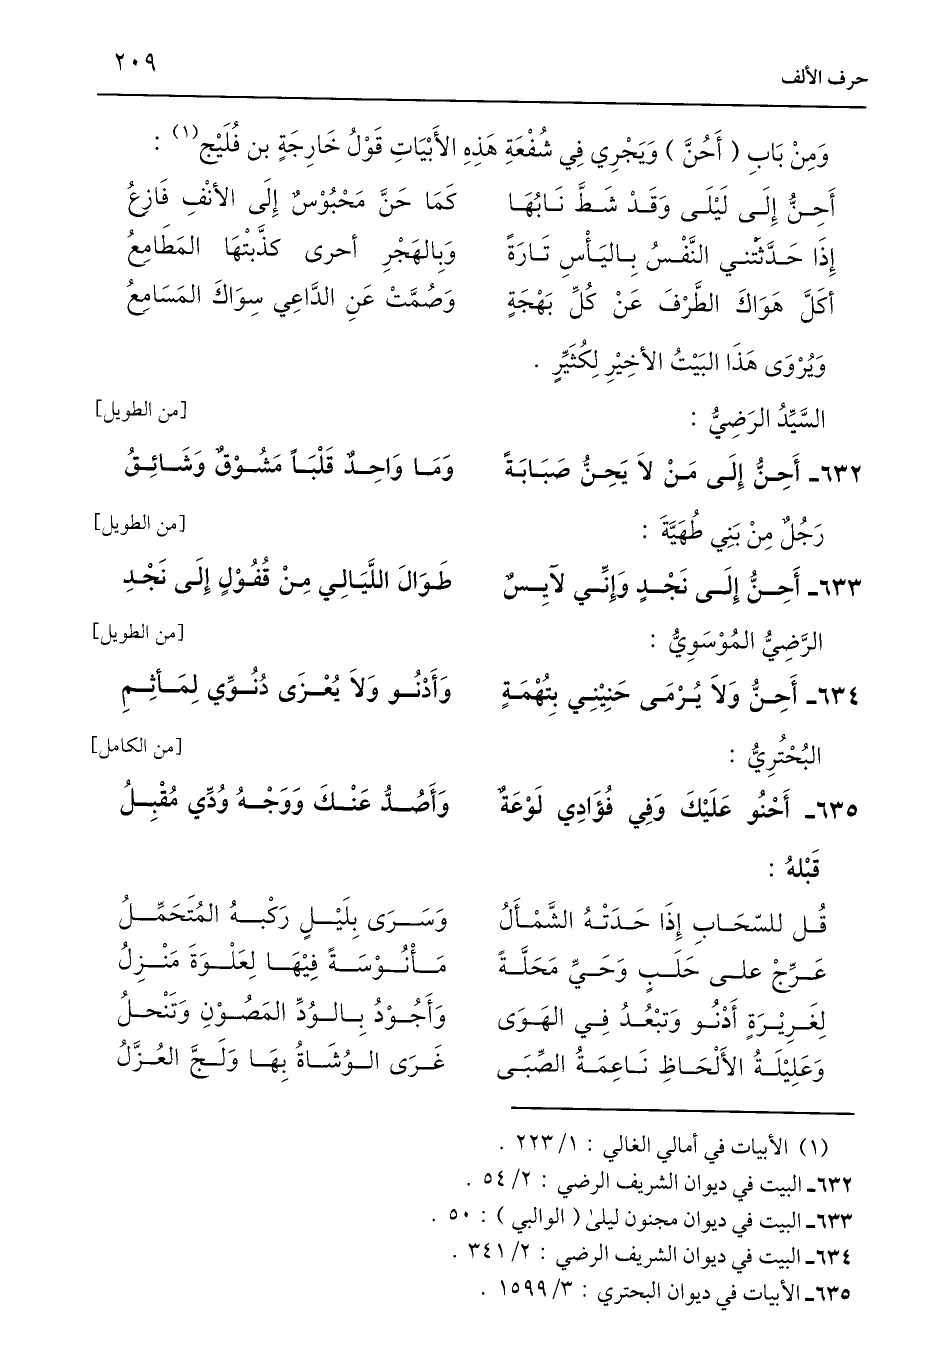 حرف الألف ٢٠٩
وَمِنْ بَابِ ( أَحُنَّ ) وَيَجْرِي فِي شُفْعَةِ هَذِهِ الأَبْيَاتِ قَوْلُ خَارِجَةٍ بن فُلَيْحٍ(١) :
أَحِنُّ إِلَى لَيْلَى وَقَدْ شَطَّ نَابُهَا كَمَا حَنَّ مَحْبُوْسٌ إِلَى الأنْفِ فَازِعُ
إِذَا حَدَّثَتْنِي النَّفْسُ بِاليَأْسِ تَارَةً وَبِالهَجْرِ أحرى كذَّبتْهَا المَطَامِعُ
أكَلَّ هَوَاكَ الطَّرْفَ عَنْ كُلِّ بَهْجَةٍ وَصُمَّتْ عَنِ الدَّاعِي سِوَاكَ المَسَامِعُ
وَيُرْوَى هَذَا البَيْتُ الأخِيْرِ لِكُثَيِّرٍ .
السَّيِّدُ الرَضِيُّ : [من الطويل]
٦٣٢ـ أَحِنُّ إِلَى مَنْ لاَ يَحِنُّ صَبَابَةً وَمَا وَاحِدٌ قَلْبَاً مَشُوْقٌ وَشَائِقُ
رَجُلٌ مِنْ بَنِي طُهَيَّةَ : [من الطويل]
٦٣٣ـ أَحِنُّ إِلَى نَجْدٍ وَإِنِّي لآيِسٌ طَوَالَ اللَّيَالِي مِنْ قُفُوْلٍ إِلَى نَجْدِ
الرَّضِيُّ المُوْسَوِيُّ : [من الطويل]
٦٣٤ـ أَحِنُّ وَلاَ يُرْمَى حَنِيْنِي بِتُهْمَةٍ وَأَدْنُو وَلاَ يُعْزَى دُنُوِّي لِمَأثِمِ
البُحْتُرِيُّ : [من الكامل]
٦٣٥ـ أَحْنُو عَلَيْكَ وَفِي فُؤَادِي لَوْعَةٌ وَأَصُدُّ عَنْكَ وَوَجْهُ وُدِّي مُقْبِلُ
قَبْلهُ :
قُل للسّحَابِ إِذَا حَدَتْهُ الشَّمْأَلُ وَسَرَى بِلَيْلٍ رَكْبهُ المُتَحَمِّلُ
عَرِّجْ على حَلَبٍ وَحَيِّ مَحَلَّةً مَأْنُوْسَةً فِيْهَا لِعَلْوَةَ مَنْزِلُ
لِغَرِيْرَةٍ أَدْنُو وَتبْعُدُ فِي الهَوَى وَأَجُوْدُ بِالوُدِّ المَصُوْنِ وَتَبْحلُ
وَعَلِيْلَةُ الأَلْحَاظِ نَاعِمَةُ الصِّبَى غَرَى الوُشَاةُ بِهَا وَلَجَّ العُزَّلُ
(١) الأبيات في أمالي الغالي : ١/ ٢٢٣ .
٦٣٢ـ البيت في ديوان الشريف الرضي : ٢/ ٥٤ .
٦٣٣ـ البيت في ديوان مجنون ليلىٰ ( الوالبي ) : ٥٠ .
٦٣٤ـ البيت في ديوان الشريف الرضي : ٢/ ٣٤١ .
٦٣٥ـ الأبيات في ديوان البحتري : ٣/ ١٥٩٩ .